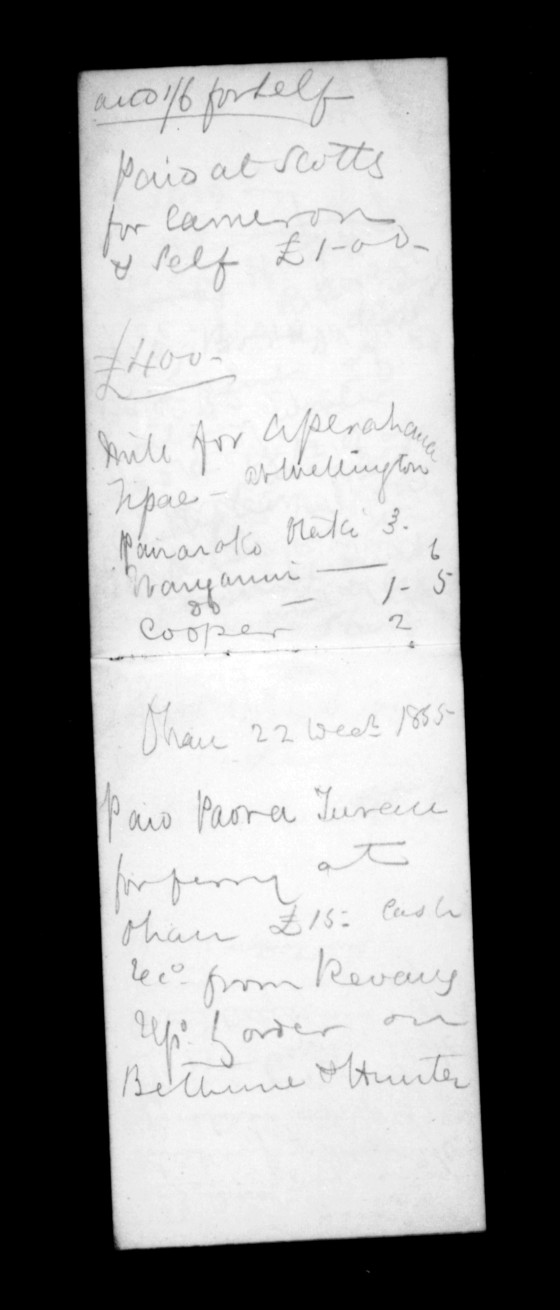 and 1/6 for self
Paid at Scotts
for Cameron
& Self £1-0-0-
£400-
for Aperahama
Tipae - at Wellington
Otaki 3.
Wanganui — 6
do — 1- 5
Cooper 2
Ohau 22 Decr 1855
Paid Paora Tureau
for ferry at
Ohau £15= Cash
recd. from Revans
by order on
Bethune & Hunter